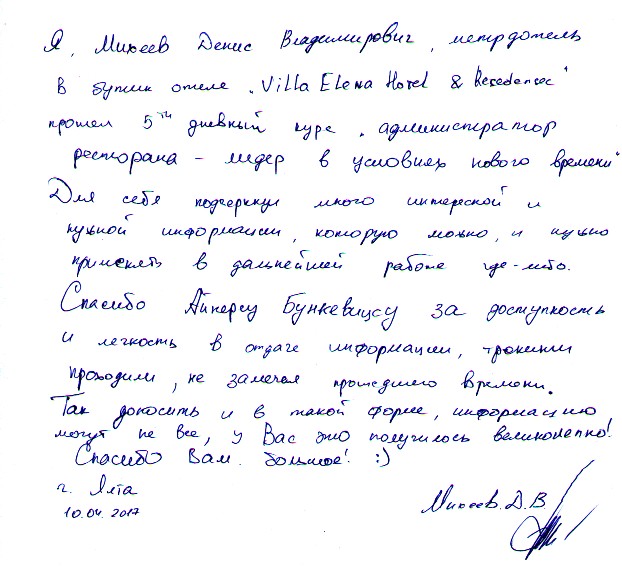 Я, Михеев Денис Владимирович, метрдотель
в бутик отеле „Villa Elena Hotel & Residences"
прошел 5ти дневный курс „администратор
ресторана - лидер в условиях нового времени"
Для себя подчеркнул много интересной и
нужной информации, которую можно, и нужно
применять в дальнейшей работе где-либо.
Спасибо Айнарсу Бункевицсу за доступность
и легкость в отдаче информации, тренинги
проходили, не замечая прошедшего времени.
Так доносить и в такой форме, информацию
могут не все, у Вас это получилось великолепно!
Спасибо Вам большое! :)
г. Ялта
10.04.2017
Михеев. Д.В.